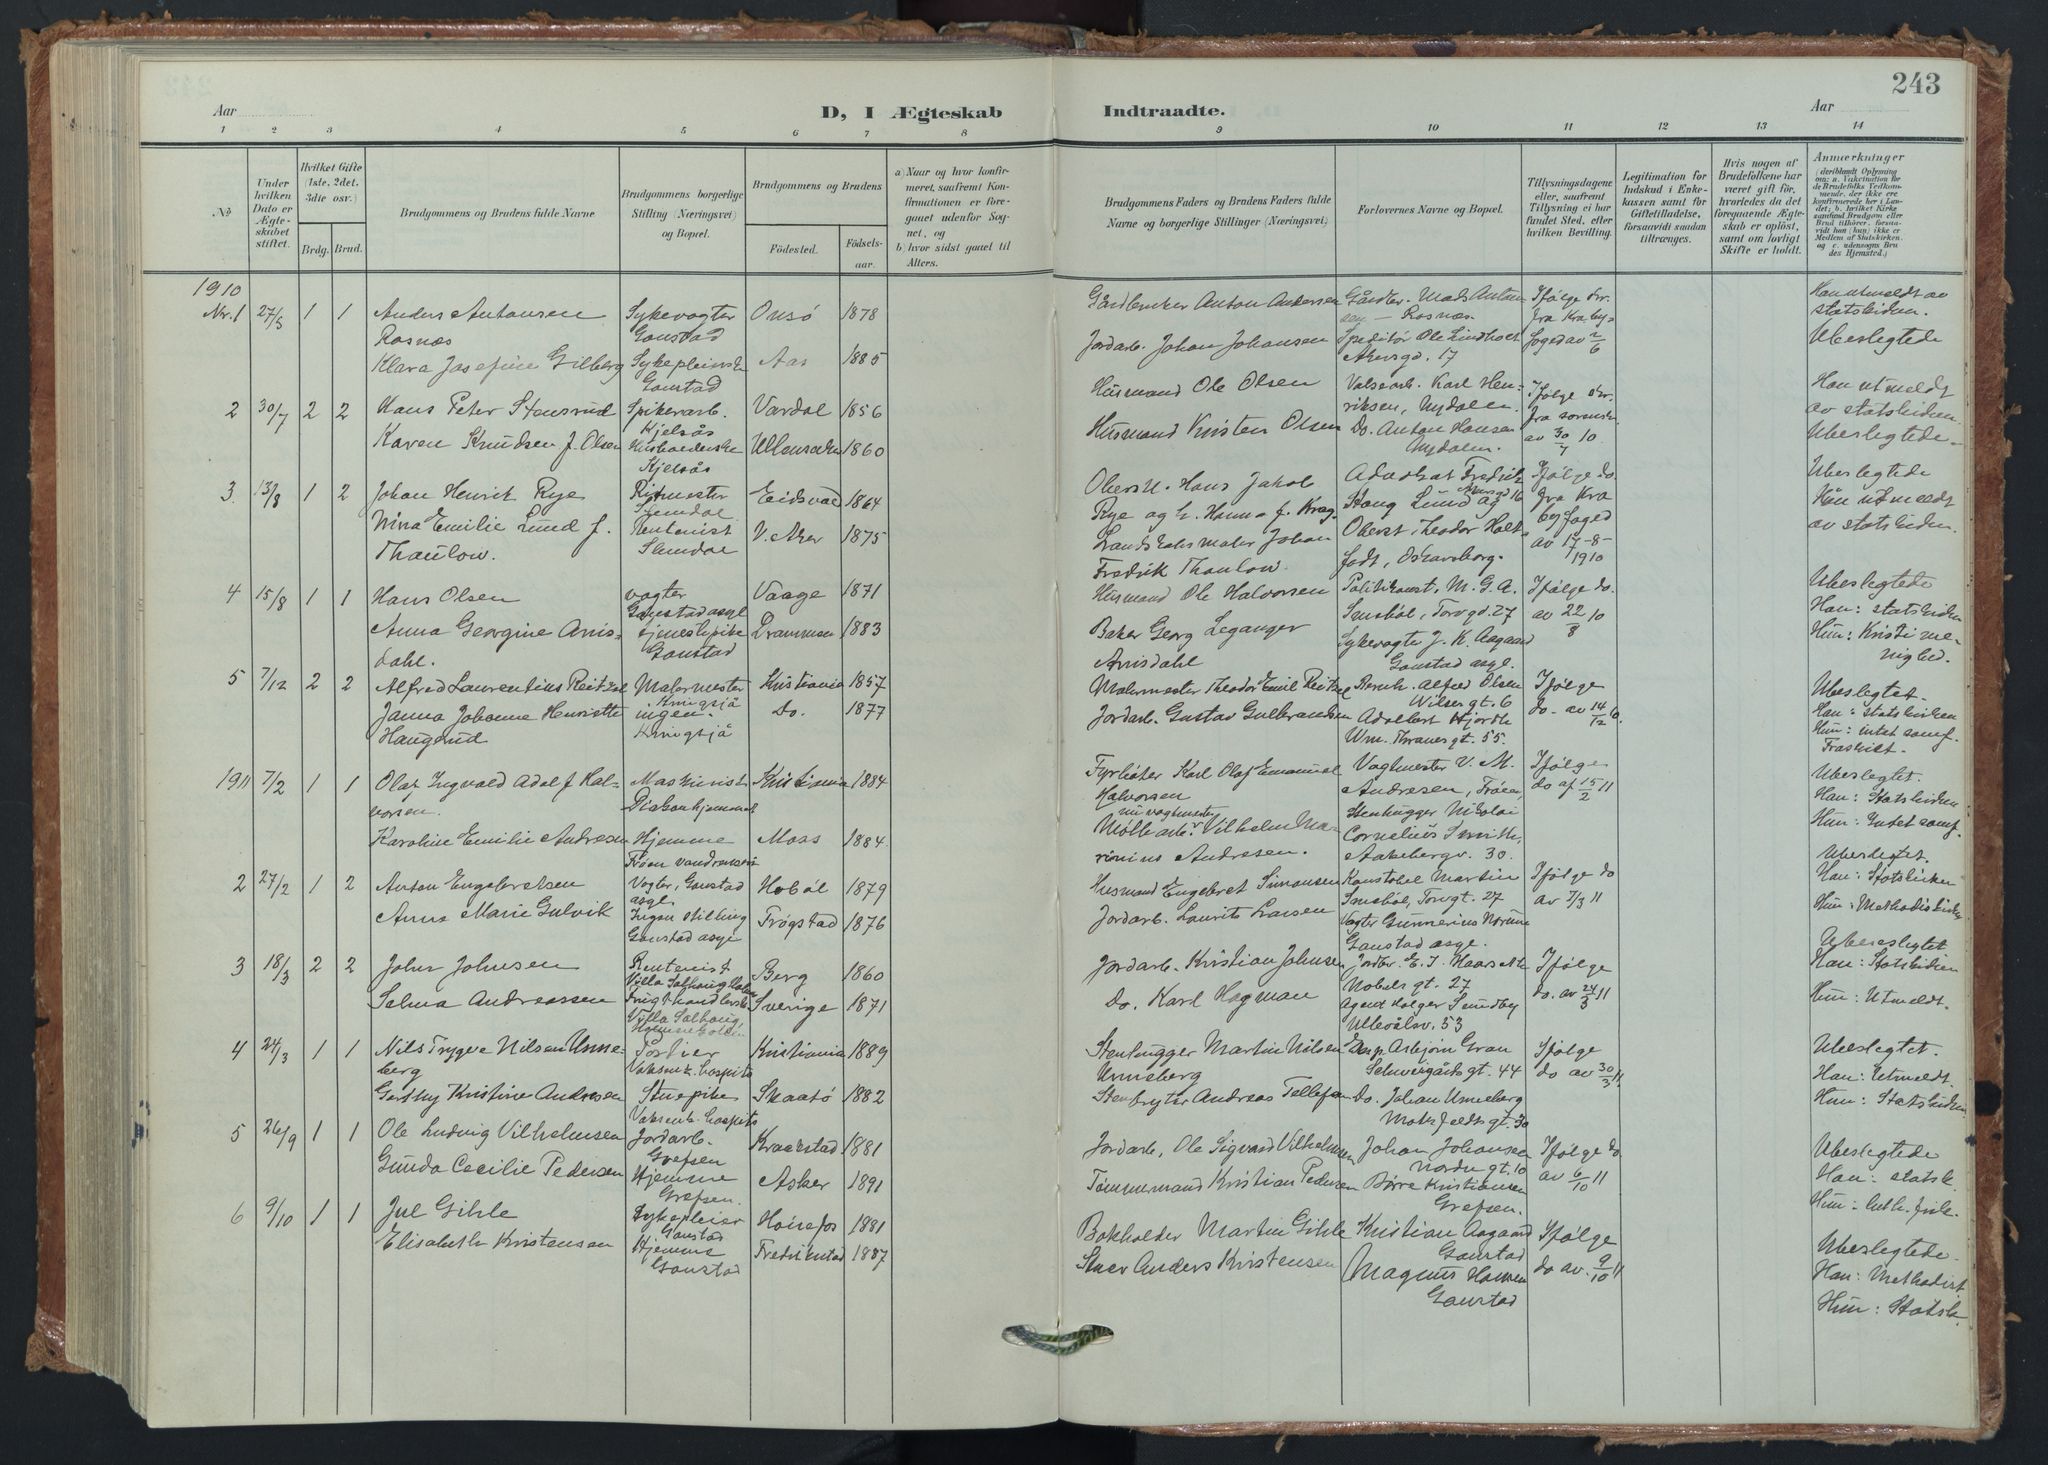 243
Aar
D, I Ægteskab
Indtraadte.
Aar
1 2 3 4 5 6 7 8 9 10 11 12 13 14
No
Under hvilken Dato er Ægteskabet stiftet.
Hvilket Gifte (1ste, 2det, 3die osv.)
Brdg. Brud.
Brudgommens og Brudens fulde Navne
Brudgommens borgerlige Stilling (Næringsvei) og Bopæl.
Brudgommens og Brudens
Fødested.
Fødselsaar.
a) Naar og hvor konfirmeret, saafremt Konfirmationen er foregaaet udenfor Sognet, og
b) hvor sidst gaael til Alters.
Brudgommens Faders og Brudens Faders fulde Navne og borgerlige Stillinger (Næringsvei)
Forlovernes Navne og Bopæl.
Tillysningsdagene eller, saafremt Tillysning ei har fundet Sted, efter hvilken Bevilling.
Legitimation for Indskud i Enkekassen samt for Giftetilladelse, forsaavidt saadan tiltrænges.
Hvis nogen af Brudefolkene har været gift før, hvorledes da det foregaaende Ægteskab er opløst, samt om lovligt Skifte er holdt.
Anmærkninger
1910
Nr. 1 27/5 1 1 Anders Antonsen Sykevogter Onsø 1878
Rosnæs Gaustad
Klara Josefine Gilberg Sykepleierske Aas 1885
Gaustad
Gårdbruker Anton Andersen Gårdbr. Mads Anton
sen - Rosnæs.
Jordarb. Johan Johansen Speditør Ole Lindholt
Akersgd. 17
Ifølge
fra Kra. by-
foged av 2/6
Han utmeldt av
statskirken.
Ubeslegtede
2 30/7 2 2 Hans Peter Stensrud Spikerarb. Vardal 1856
Kjelsås
Karen Knudsen f. Olsen Husholderske Ullensaker 1860
Kjelsås
Husmand Ole Olsen Valsearb. Karl Hen-
riksen, Nydalen.
Husmand Kristen Olsen Do. Anton Hansen
Nydalen.
Ifølge
av 30/7 10.
Han utmeldt
av statskirken
Ubeslegtede
3 13/8 1 2 Johan Henrik Rye Ritmester Eidsvold 1864
Slemdal
Nina Emilie Lund f. Rentenist V. Aker 1875
Thaulow. Slemdal
Oberstl. Hans Jakob Advokat Fredrik
Rye og h. Hanna f. Krag Stang Lund Akersgd 16
Johan Oberst Theodor Holt-
Fredrik Thaulow. fodt, Oskarsborg.
Ifølge do.
fra Kra
byfoged
av 17-8-
1910
Ubeslegtede
Hun utmeldt
av statskirken.
4 15/8 1 1 Hans Olsen vogter Vaage 1871
Gaustad asyl
Anna Georgine Arnis- tjenestepike Drammen 1883
dahl. Gaustad
Husmand Ole Halvorsen Politikonst. M. G. A.
Smebøl, Torvgd. 27
Baker Georg Leganger Sykevogter J. K. Aagaard
Arnisdahl Gaustad asyl.
Ifølge do.
av 22/8 10
Ubeslegtede
Han: statskirken
Hun: Kristi me-
nighed.
5 7/12 2 2 Alfred Laurentius Reitzel Malermester Kristiania 1857
Janna Johanne Henriette ingen. Do. 1877
Haugerud
Malermester Theodor Emil Reitzel Bernh. Alfred Olsen
Wilsesgt. 6
Jordarb. Gustav Gulbrandsen Adelbert Hjorth
Wm. Thranesgt. 55.
Ifølge
do. av 14/12 10.
Ubeslegtet.
Han: Statskirken
Hun: intet samf.
Fraskilt.
1911 7/2 1 1 Olaf Ingvald Adolf Hal- Maskinist Kristiania 1884
vorsen. Diakonhjemmet.
Karoline Emilie Andresen Hjemme Moss 1884
Frøen
Fyrbøter Karl Olaf Emanuel Vagtmester V. M.
Halvorsen Andresen, Frøen
nu vagtmester Stenhugger Nikolai
Møllearb. Vilhelm Ma- Cornelius Smith,
rinius Andresen. Aakebergv. 30.
Ifølge
do af 15/2 11
Ubeslegtet.
Han: Statskirken
Hun: Intet samf.
2 27/2 1 2 Anton Engebretsen Vogter, Gaustad Hobøl 1879
asyl
Anna Marie Gulvik Ingen stilling Trøgstad 1876
Gaustad asyl
Husmand Engebret Simonsen Konstabel Martin
Smebøl, Torvgt. 27
Jordarb. Laurits Larsen Vogter Gunnerius Norum
Gaustad asyl.
Ifølge do
av 7/3 11
Ubeslegtet.
Han: Statskirken
Hun: Methodistkirken
3 18/3 2 2 John Johnsen Rentenist Berg 1860
Villa Solhaug
Selma Andreassen Frugthandlerske Sverige 1871
Villa Solhaug
Jordarb. Kristian Johnsen Jordbr. E. J.
Nobelsgt. 27
Do. Karl Hagman Agent Holger Sundby
Ullevålsv. 53
Ifølge
do. av 24/3 11
Ubeslegtet
Han: Statskirken
Hun: Utmeldt.
4 24/3 1 1 Nils Trygve Nilsen Unne- Portier Kristiania 1889
berg Voksenk. hospits
Gethy Kristine Andresen Stuepike Skaatø 1882
Voksenk. hospits
Stenhugger Martin Nilsen Exp. Asbjørn Gran
Unneberg Schweigårdsgt. 44
Stenbryter Andreas Tellefsen Do. Johan Unneberg
Motzfeldtsgt. 30
Ifølge
do av 30/3 11.
Ubeslegtet.
Han: Utmeldt.
Hun: Statskirken
5 26/9 1 1 Ole Ludvig Vilhelmsen Jordarb. Kraakstad 1881
Grefsen
Gunda Cecilie Pedersen Hjemme Asker 1891
Grefsen.
Jordarb. Ole Sigvard Vilhelmsen Johan Johansen
Nordregt. 10
Tømmermand Kristian Pedersen Børre Kristiansen
Grefsen.
Ifølge do
av 6/10 11
Ubeslegtede
Han: statsk.
Hun: luth. frik.
6 9/10 1 1 Jul Gihle Sykepleier Hønefos 1881
Gaustad
Elisabeth Kristensen Hjemme Fredrikstad 1887
Gaustad
Bokholder Martin Gihle Kristian Aagaard
Gaustad
Anders Kristensen Magnus Hansen
Gaustad
Ifølge
do av 9/10 11
Ubeslegtede
Han: Methodist
Hun: Statsk.